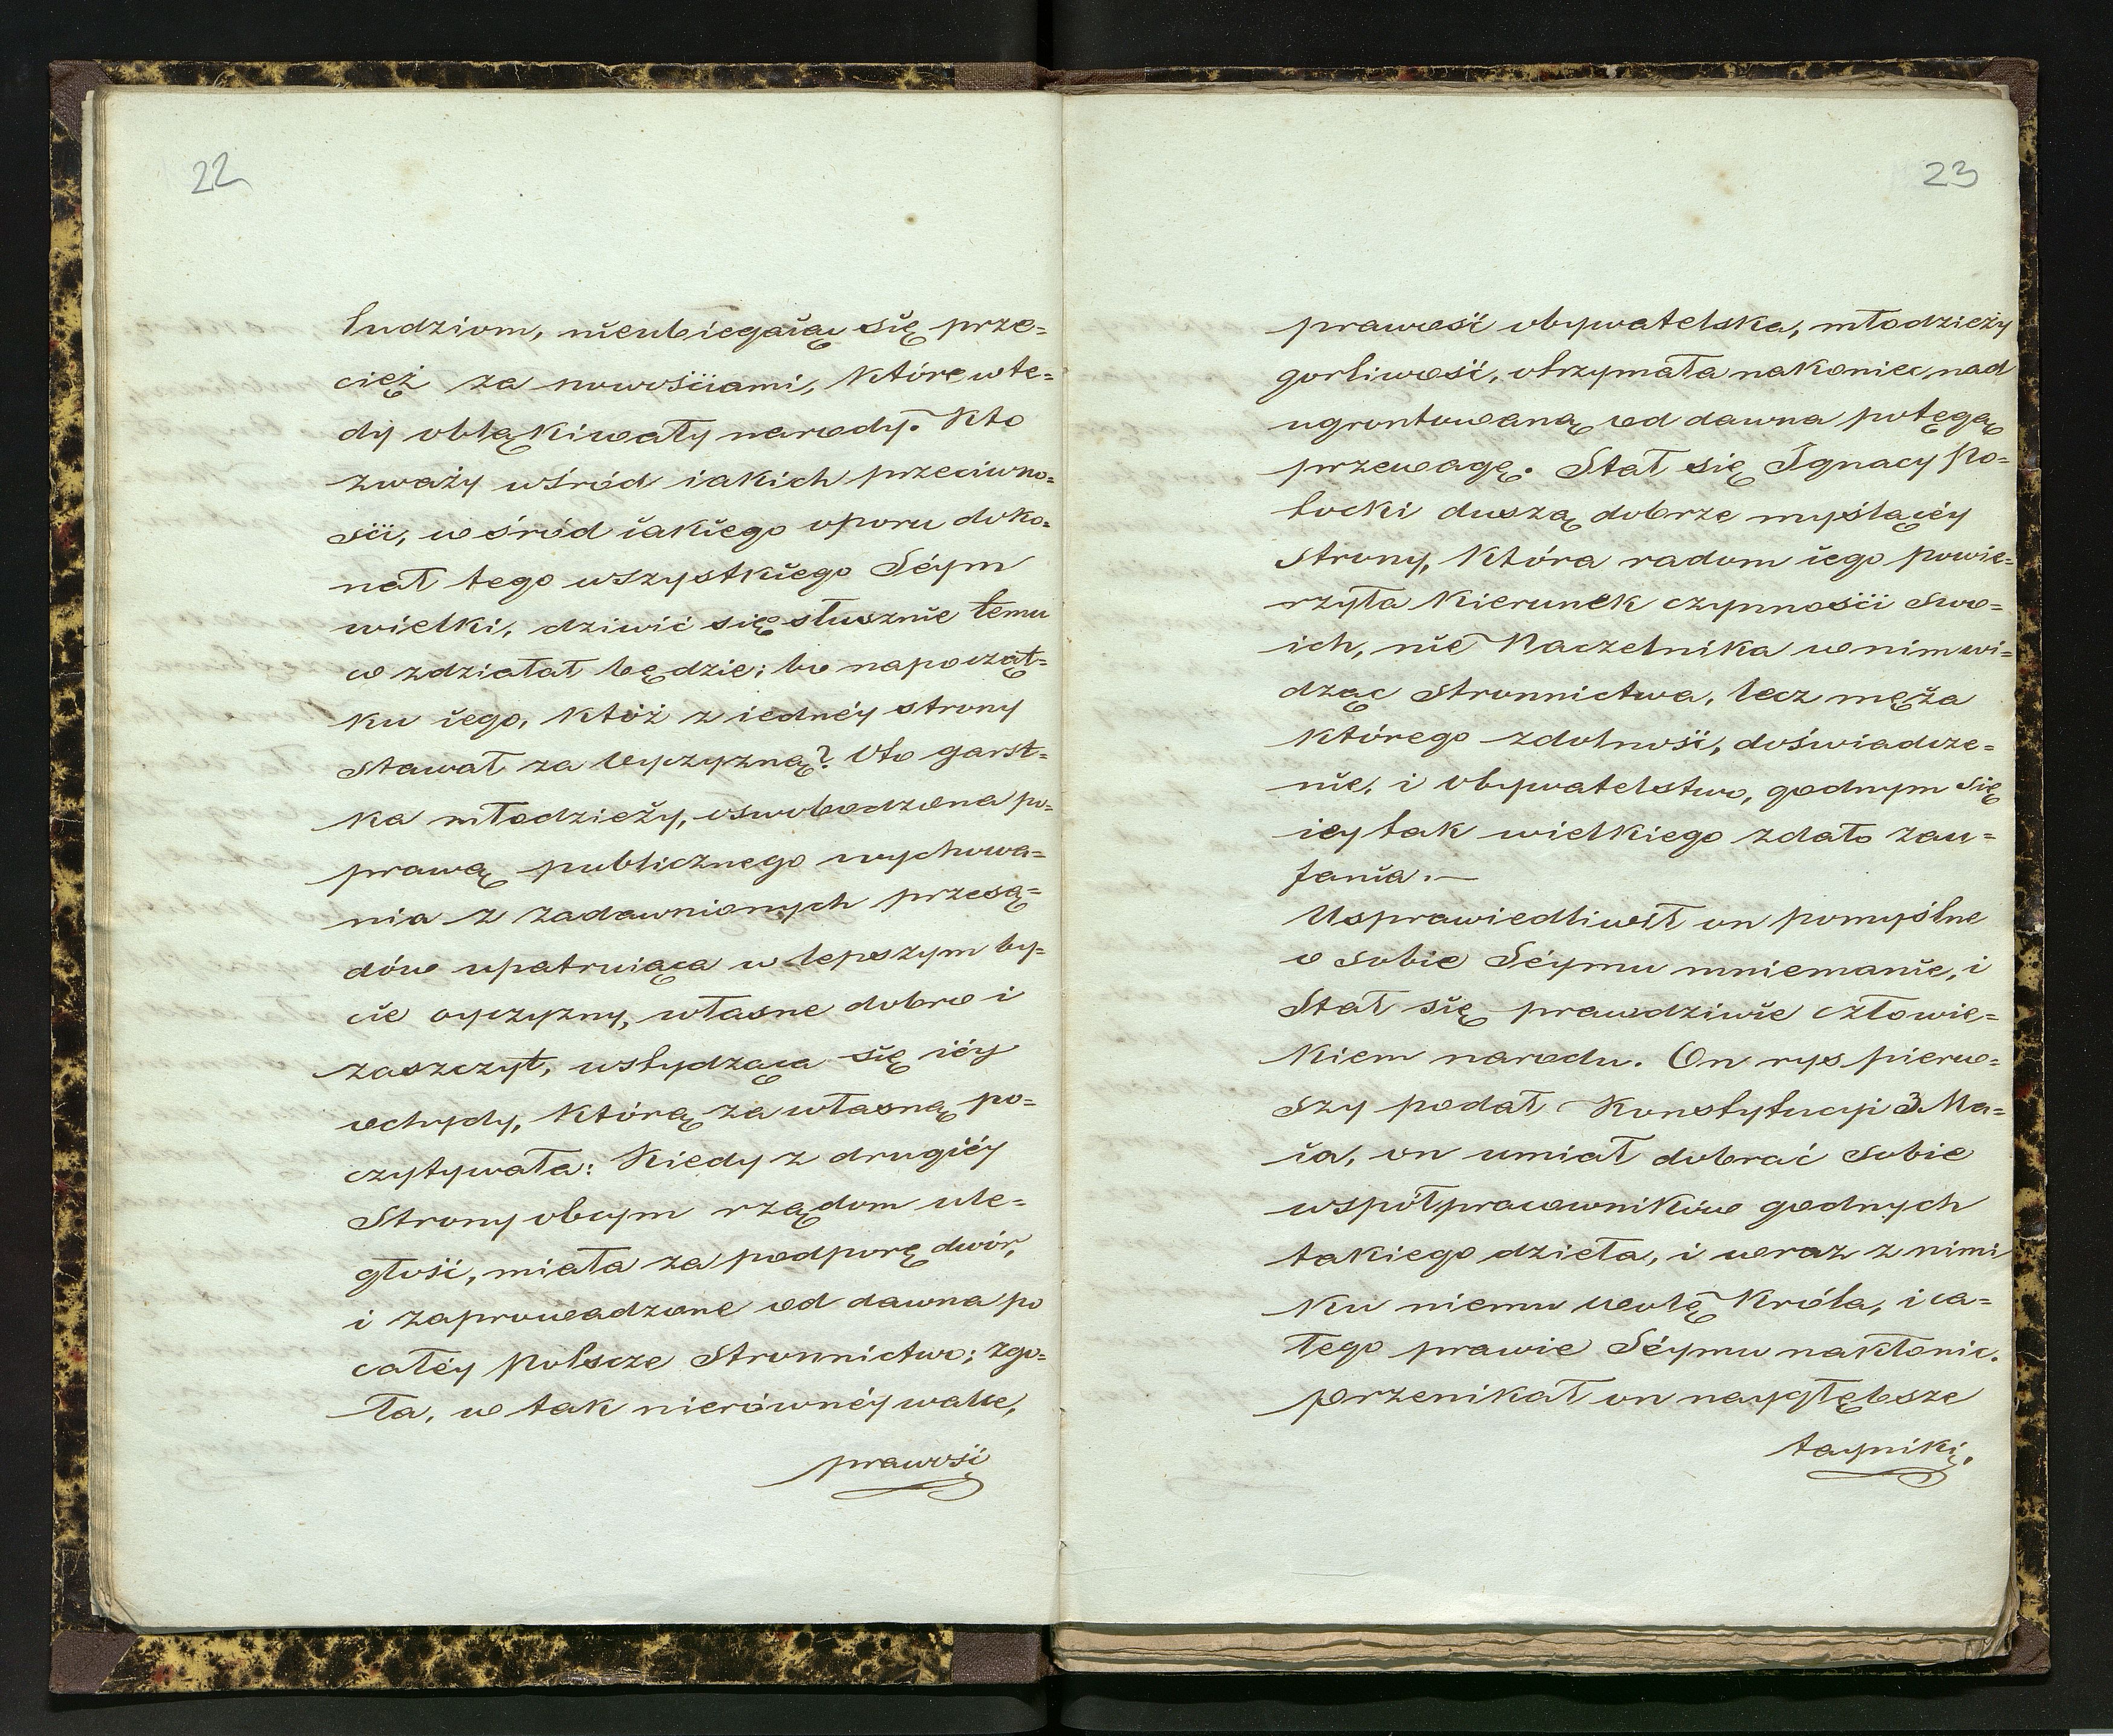 22
ludziom, nieubiegaiąc się prze=
cięż za nowościami, które wte=
dy obłąkiwały narody. Kto
zważy wśród iakich przeciwno=
ści, wśród iakiego oporu doko=
nał tego wszystkiego Séym
wielki, dziwić się słusznie temu
co zdziałał będzie; bo napocząt=
ku iego, któż z iednéy strony
stawał za Oyczyzną? Oto garst=
ka młodzieży, oswobodzona po=
prawą publicznego wychowa=
nia z zadawnionych przesą=
dów upatruiąca w lepszym by=
cie oyczyzny, własne dobro i
zaszczyt, wstydząca się iéy
ochydy, którą za własną po=
czytywała: Kiedy z drugiéy
Strony obcym rządom ule=
głość, miała za podporę dwór,
i zaprowadzone od dawna po
całéy Polscze Stronnictwo; zgo=
ła, w tak nierównéy walce,
prawość
23
prawość obywatelska, młodzieży
gorliwość, otrzymała nakoniec, nad
ugrontowaną od dawna potęgą
przewagę. Stał się Ignacy Po=
tocki duszą dobrze myślącéy
strony, która radom iego powie=
rzyła kierunek czynności swo=
ich, nie Naczelnika w nim wi=
dząc stronnictwa, lecz męża
którego zdolność, doświadcze=
nie, i obywatelstwo, godnym się
iey tak wielkiego zdało zau=
fania.—
Usprawiedliwił on pomyślne
o sobie Séymu mniemanie, i
Stał się prawdziwie człowie=
kiem narodu. On rys pierw=
szy podał Konstytucyi 3. Ma=
ia, on umiał dobrać sobie
współpracowników godnych
takiego dzieła, i wraz z nimi
ku niemu wolę Króla, i ca=
łego prawie Séymu nakłonić.
przenikał on naygłębsze
tayniki.